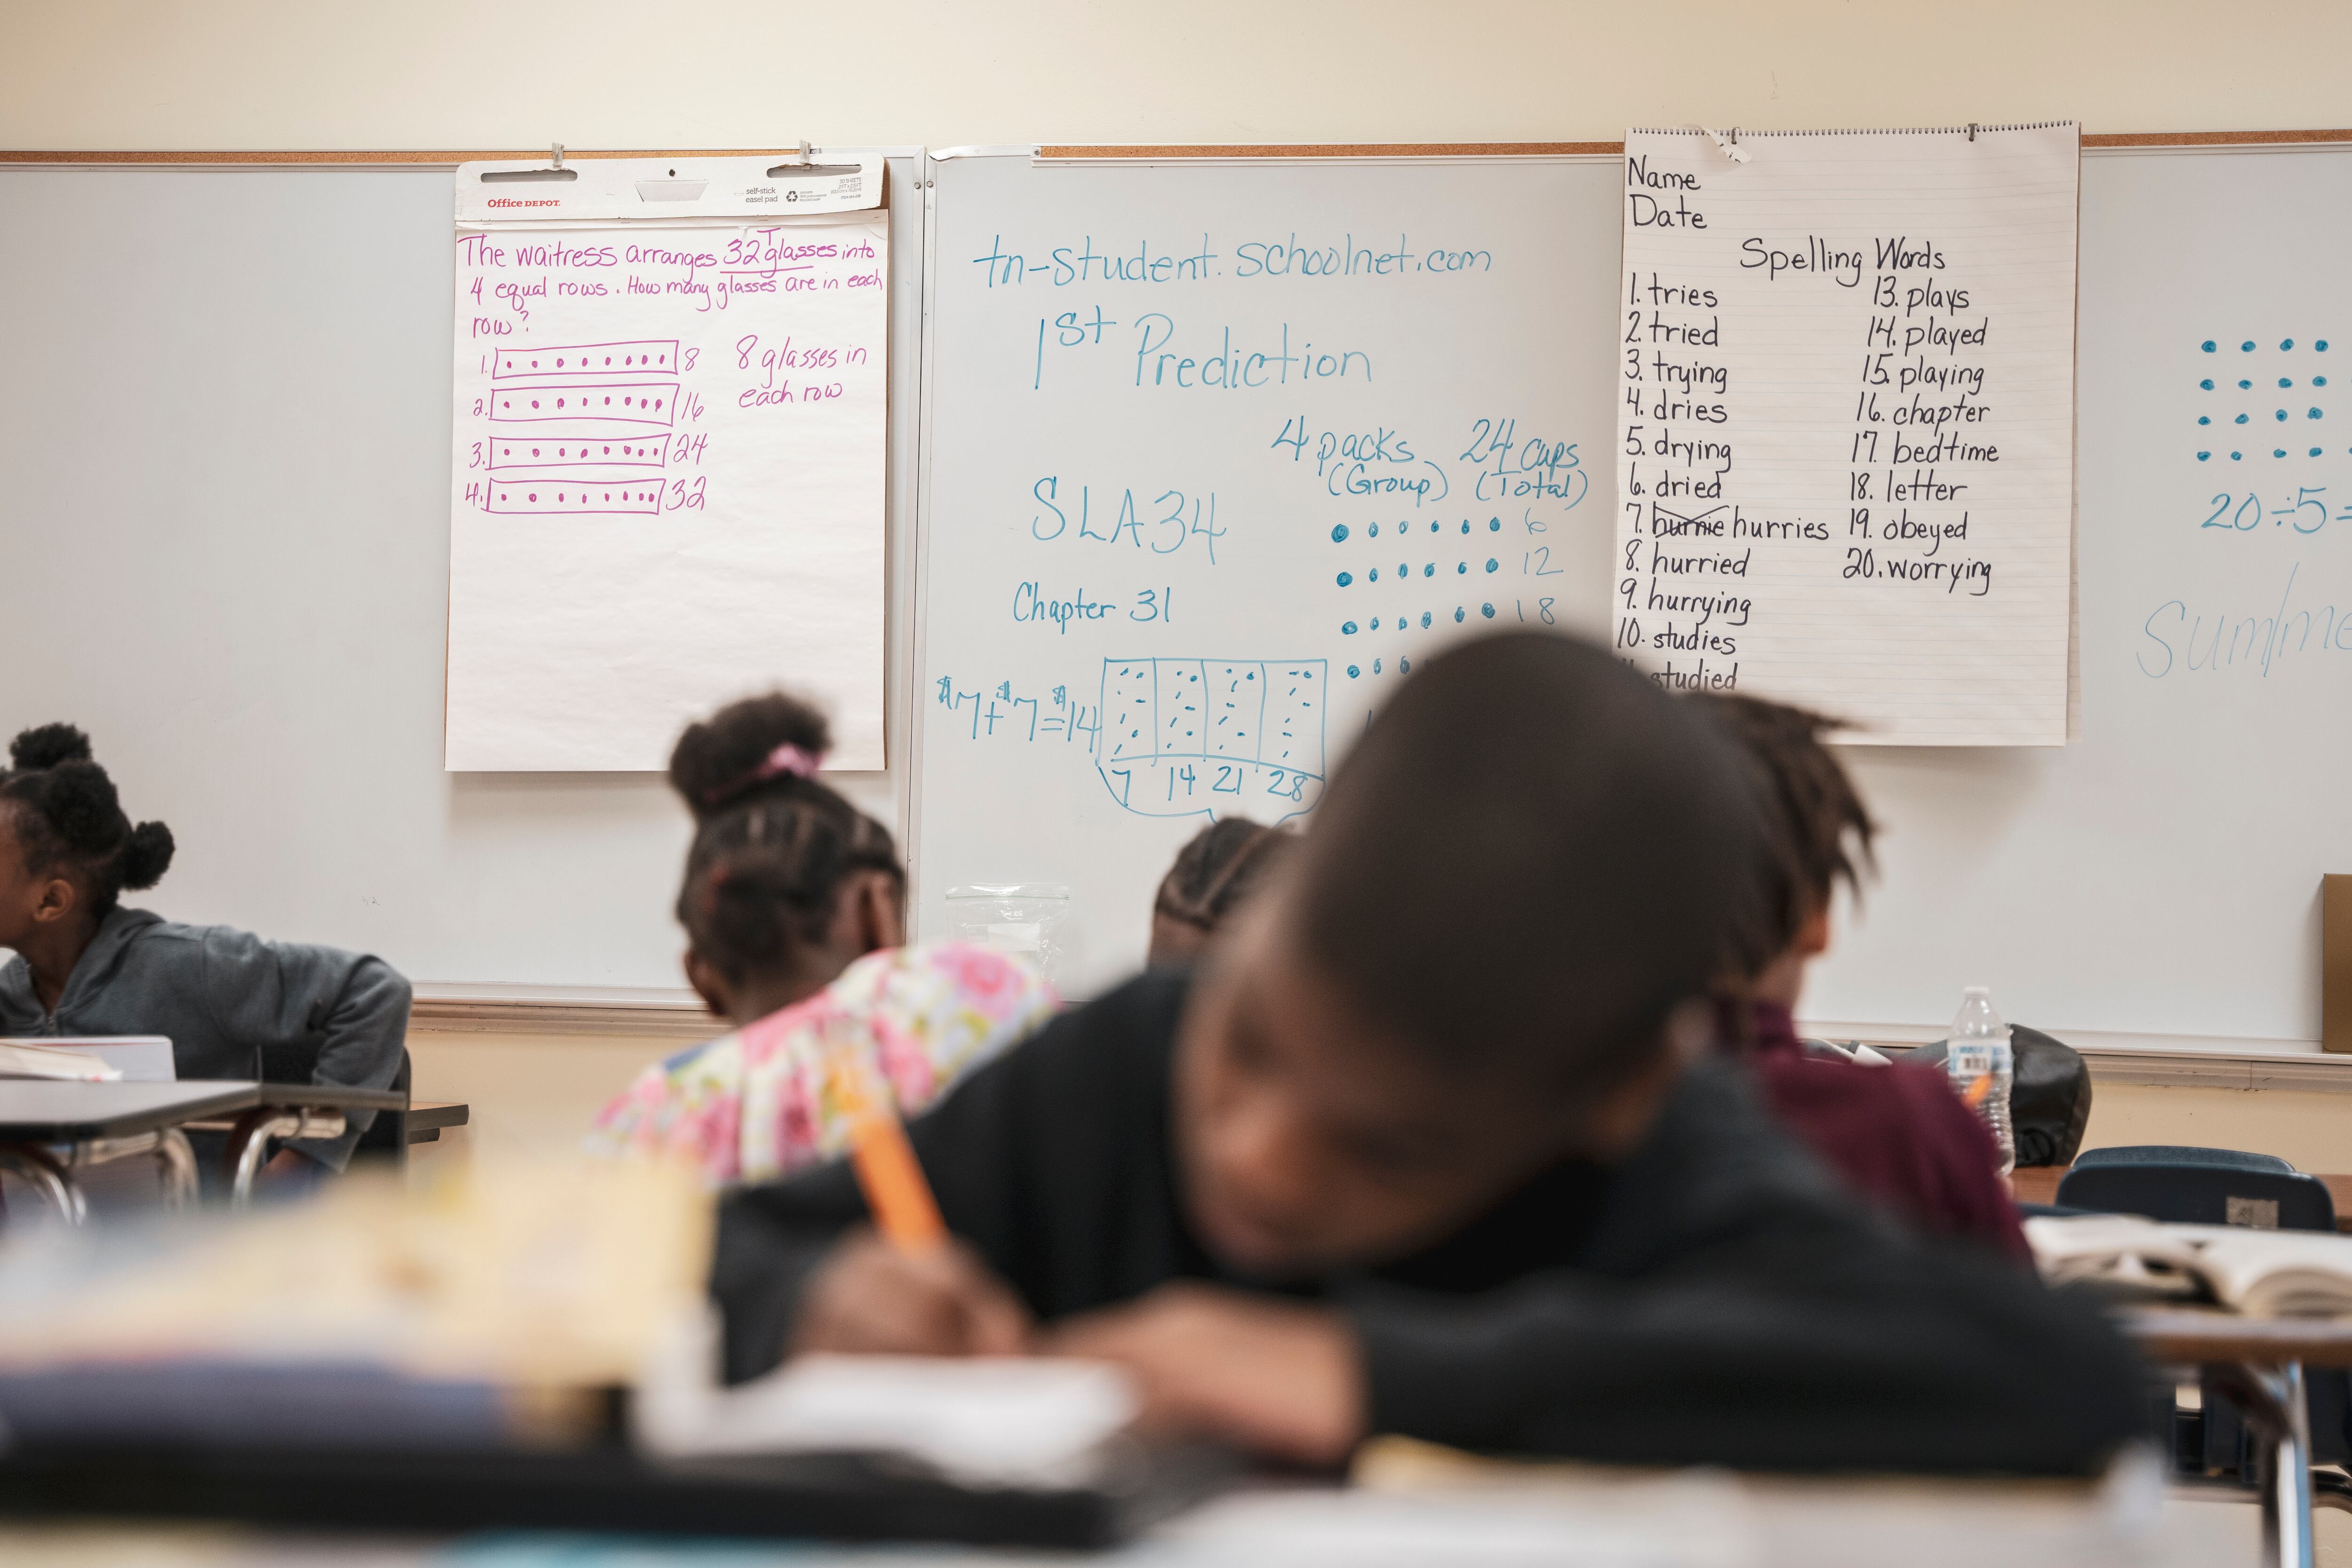 Office DEPOT.
self-stick
easel pad
The waitress arranges 32 glasses into
T
4 equal rows. How many glasses are in each
row?
1. 8
2. 16
3. 24
4. 32
8 glasses in
each row
tn-student.schoolnet.com
1st Prediction
4 packs 24 cups
(Group) (Total)
6
12
18
SLA34
Chapter 31
$7+$7=$14
7 14 21 28
Name
Date
Spelling Words
1. tries
2. tried
3. trying
4. dries
5. drying
6. dried
7. hurries
8. hurried
9. hurrying
10. studies
studied
13. plays
14. played
15. playing
16. chapter
17. bedtime
18. letter
19. obeyed
20. worrying
20÷5=